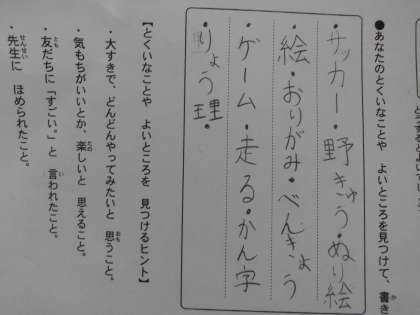 ●あなたのとくいなことや よいところを見つけて、書き
・サッカー・野きゅう・ぬり絵
・絵・おりがみ・べんきょう
・ゲーム・走る・かん字
りょう理・
【とくいなことや よいところを 見つけるヒント】
・大すきで、どんどんやってみたいと 思うこと。
・気もちがいいとか、楽しいと 思えること。
・友だちに「すごい。」と 言われたこと。
・先生に ほめられたこと。